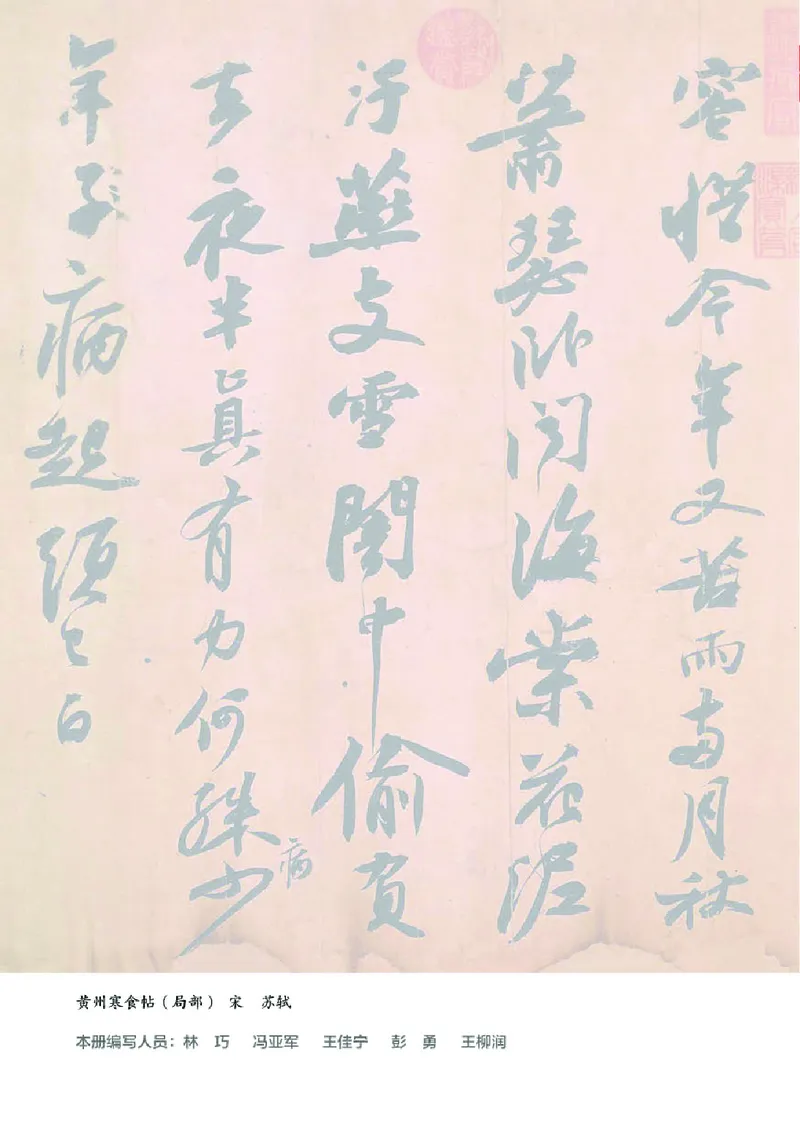 容惜今年又苦雨兩月秋
蕭瑟卧聞海棠花泥
汙燕支雪闇中偷負
去夜半眞有力何殊少
病
年子病起須已白
黄州寒食帖（局部） 宋 苏轼
本册编写人员：林 巧 冯亚军 王佳宁 彭 勇 王柳润